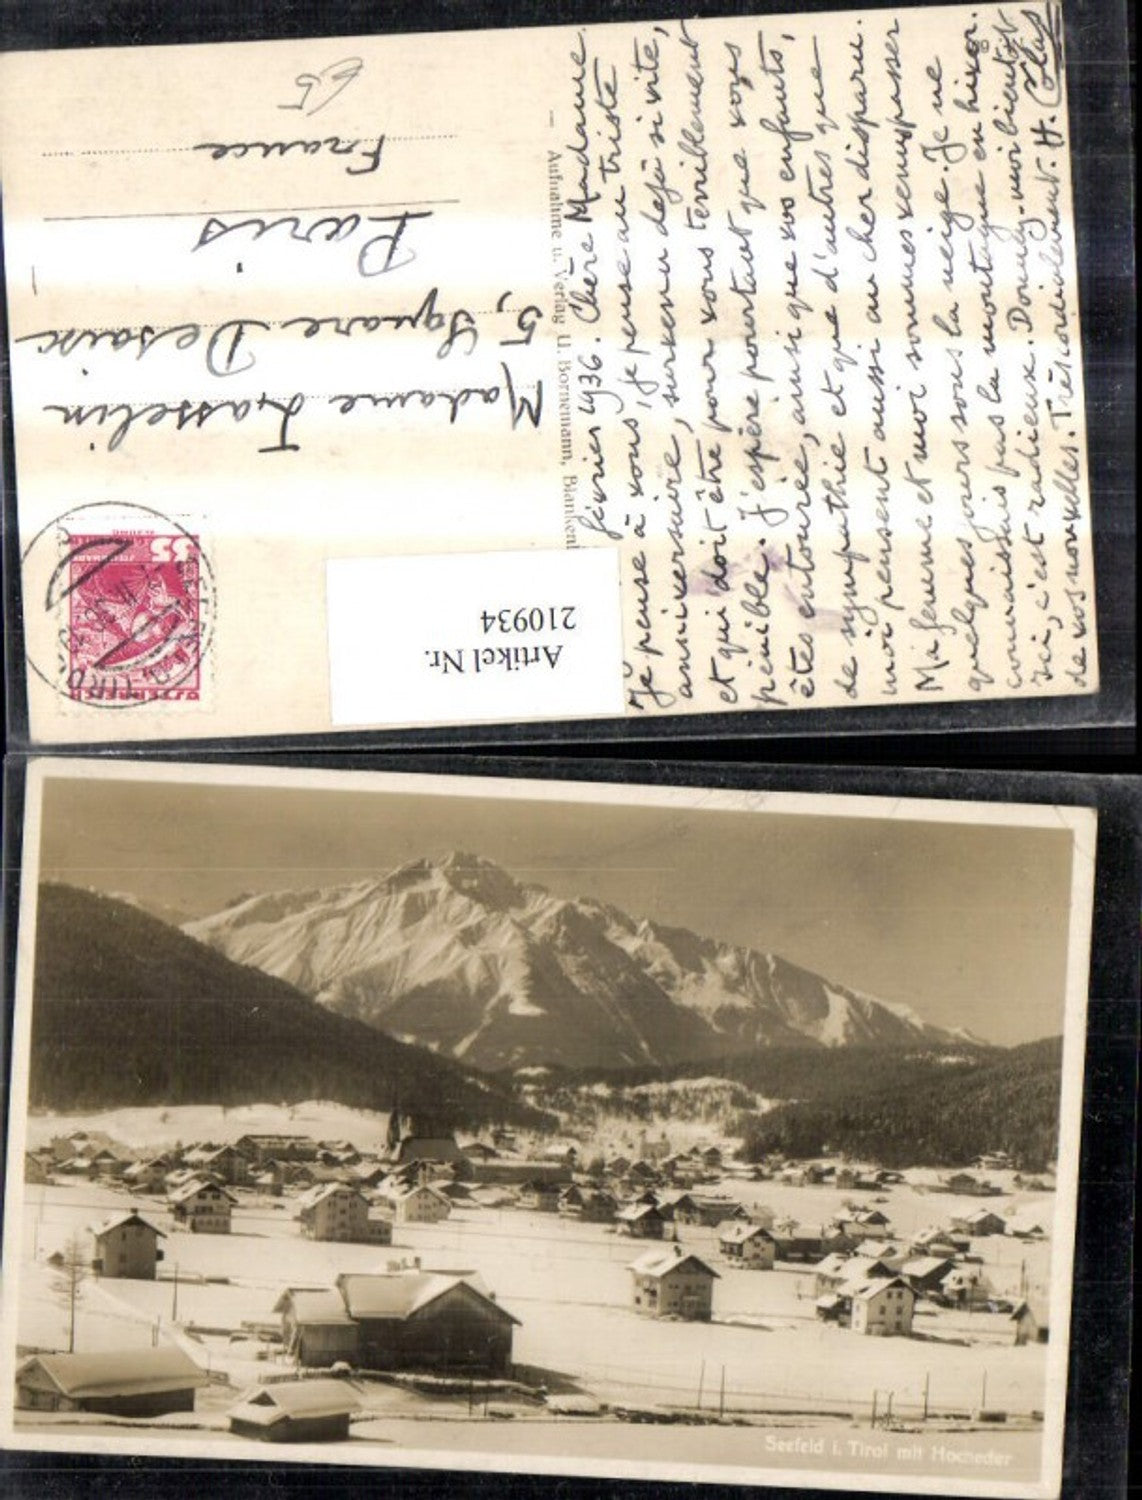 février 1936. Chère Madame.
Je pense à vous, je pense au triste
anniversaire, survenu dejà si vite,
et qui doit être pour vous terriblement
pénible. J'espère pourtant que vous
êtes entourée, ainsi que vos enfants,
de sympathie et que d'autres que
moi pensent aussi au cher disparu.
Ma femme et moi sommes venus passer
quelques jours sous la neige. Je ne
connaissais pas la montagne en hiver.
Ici, c'est radieux. Donnez-moi bientôt
de vos nouvelles. Très cordialement. H.
Aufnahme u. Verlag U. Bornemann,
Madame Lasselin
5, Square Desaix
Paris
France
S 35
ÖSTERREICH
Artikel Nr.
210934
Seefeld i. Tirol mit Hocheder